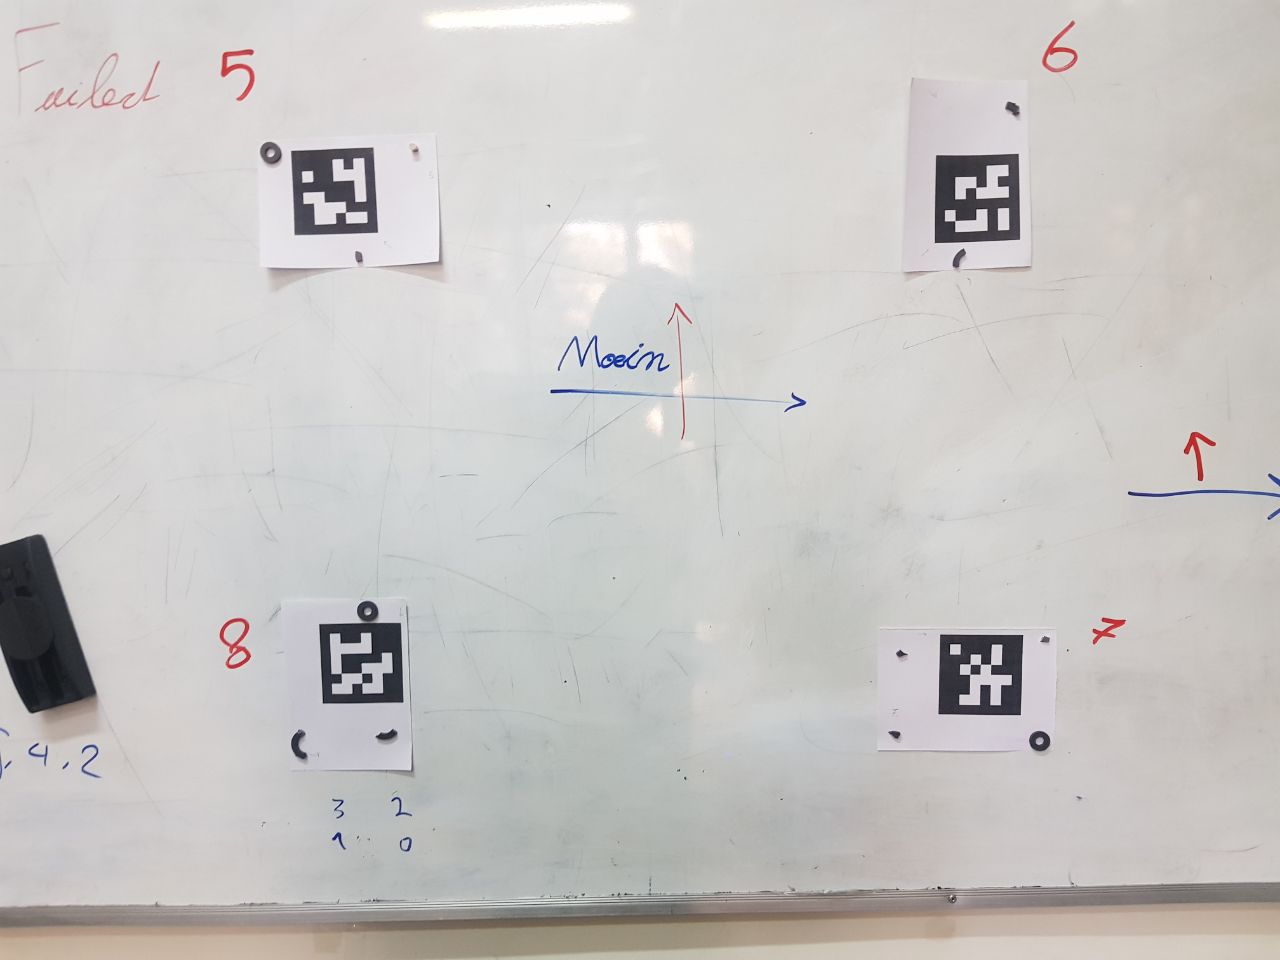 Failed 5
6
Main
8
7
.4.2
3 2
1 0